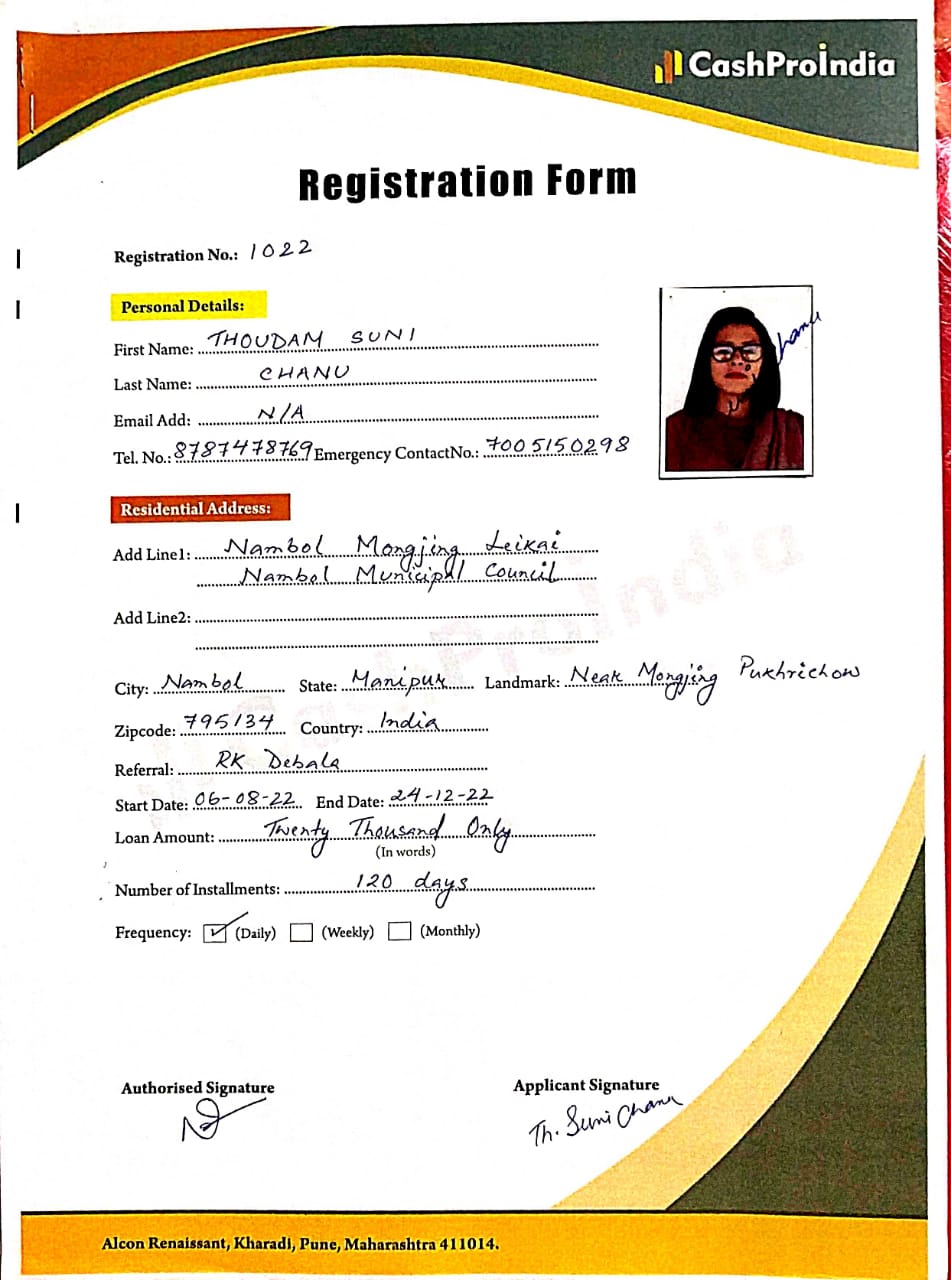 CashProIndia
Registration Form
Registration No.: 1022
Personal Details:
First Name: THOUDAM SUNI
Last Name: CHANU
Email Add: N/A
Tel. No.: 8787478769 Emergency ContactNo.: 7005150298
Residential Address:
Add Line1: Nambol Mongjing Leikai
Nambol Municipal Council
Add Line2:
City: Nambol State: Manipur Landmark: Near Mongjing Pukhrichow
Zipcode: 795134 Country: India
Referral: RK Debala
Start Date: 06-08-22 End Date: 24-12-22
Loan Amount: Twenty Thousand Only
(In words)
Number of Installments: 120 days
Frequency: (Daily) (Weekly) (Monthly)
Authorised Signature
Applicant Signature
Th. Suni Chanu
Alcon Renaissant, Kharadi, Pune, Maharashtra 411014.